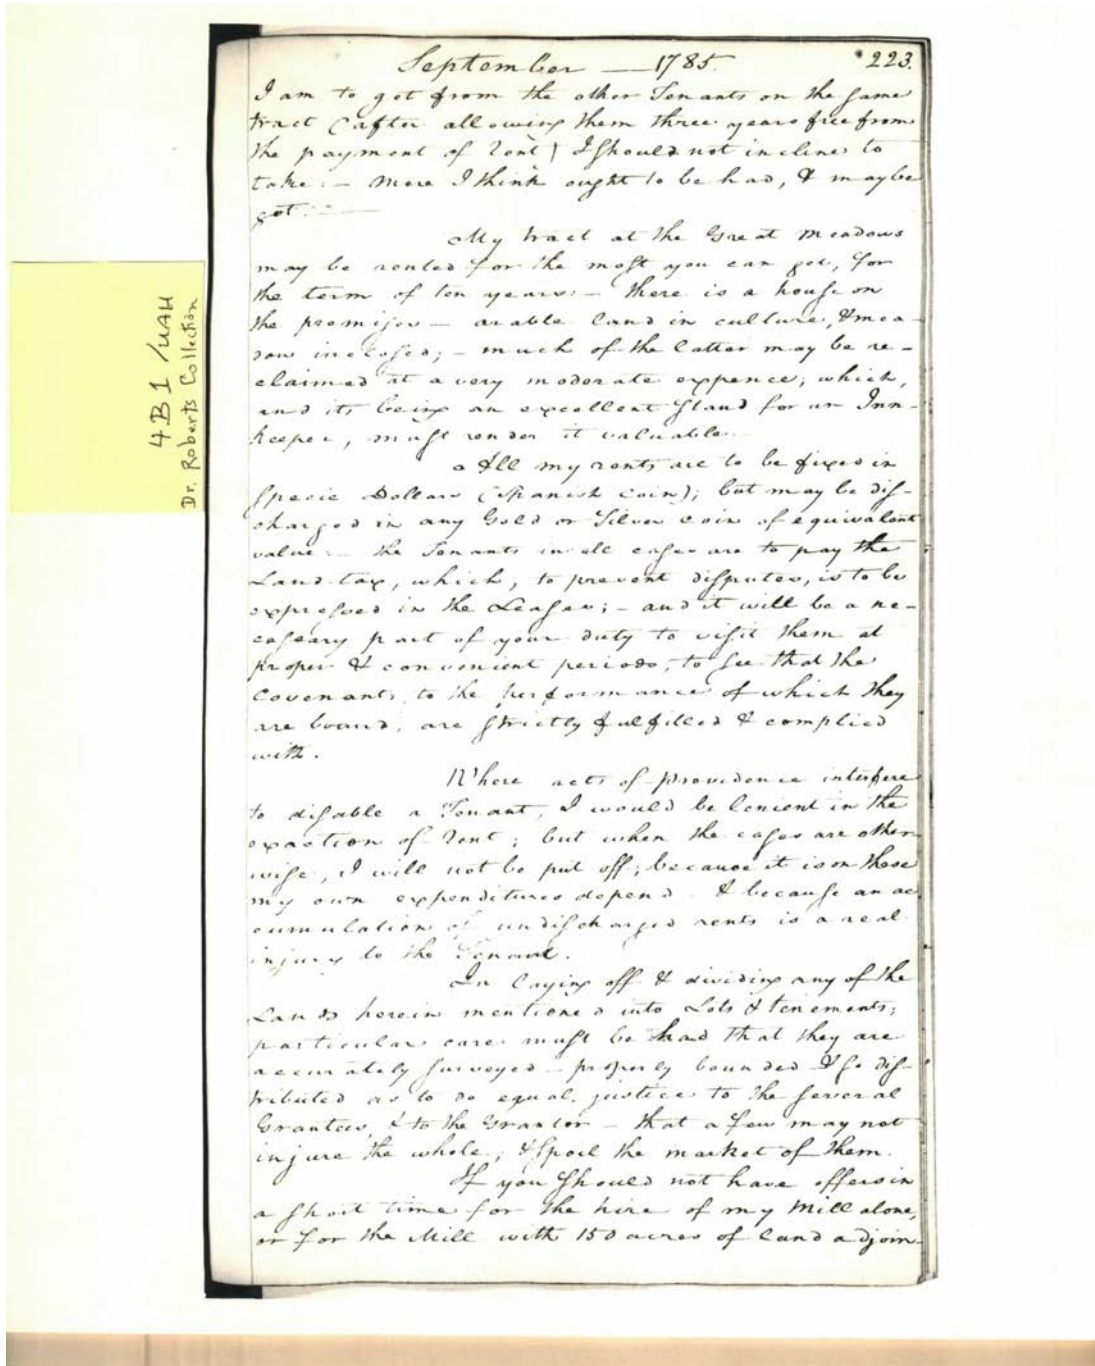 September — 1785.
223.
I am to get from the other Tenants on the same
tract (after allowing them three years free from
the payment of rent) I should not incline to
take: — more I think ought to be had, & may be
got. —
My tract at the Great Meadows
may be rented for the most you can get, for
the term of ten years: — there is a house on
the premises — arable land in culture, & mea-
dow inclosed; — much of the latter may be re-
claimed at a very moderate expence; which,
and its being an excellent stand for an Inn-
keeper, must render it valuable. —
All my rents are to be fixed in
specie Dollars (Spanish coin); but may be dis-
charged in any Gold or Silver coin of equivalent
value: — the Tenants in all cases are to pay the
Land tax, which, to prevent disputes, is to be
expressed in the Leases; — and it will be a ne-
cessary part of your duty to visit them at
proper & convenient periods, to see that the
Covenants, to the performance of which they
are bound, are strictly fulfilled & complied
with.
Where acts of providence interfere
to disable a Tenant, I would be lenient in the
exaction of rent; but when the cases are other
wise, I will not be put off; because it is on these
my own expenditures depend & because an ac
cumulation of undischarged rents is a real
injury to the Tenant.
In laying off & dividing any of the
Lands herein mentioned into Lots & tenements;
particular care must be had that they are
accurately surveyed — properly bounded & so dis-
tributed as to do equal justice to the several
Grantees, & to the Grantor — that a few may not
injure the whole, & spoil the market of them.
If you should not have offers in
a short time for the hire of my Mill alone,
or for the Mill with 150 acres of land adjoin-
4B1 / UAH
Dr. Roberts Collection